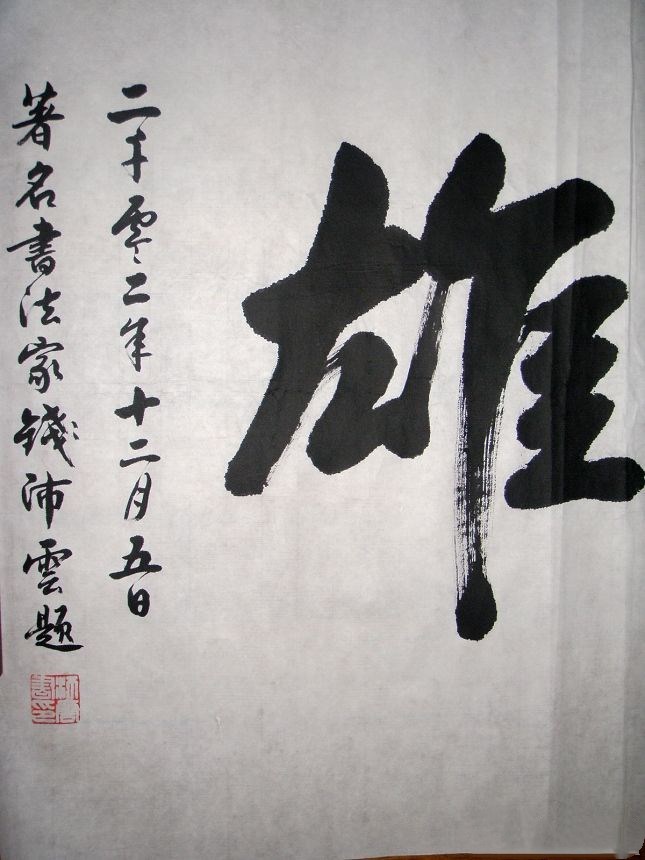 雄
二千零二年十二月五日
著名書法家錢沛雲题